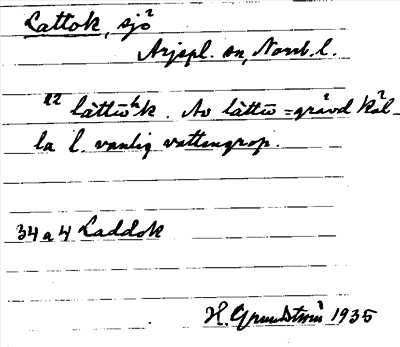 Lattok, sjö
Arjepl. sn, Norrb. l.
22 låttuᵏk. Av låttu = grävd käl-
la l. vanlig vattengrop.
34 a 4 Laddok
H. Grundström 1935